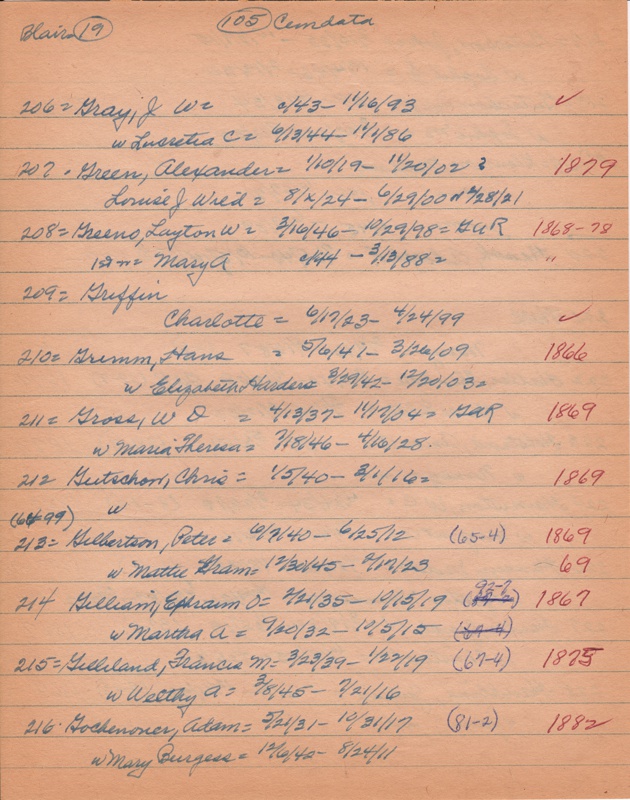 Blair 19 105 Cemdata
206= Gray, J W= c/43- 11/16/93 ✓
w Lucretia C= 6/13/44- 11/1/86
207 - Green, Alexander= 1/10/19- 11/20/02 ? 1879
Louise J Wied= 8/x/24- 6/29/00 or 2/28/21
208= Greeno, Layton W= 3/16/46- 10/29/98= GAR 1868-78
1st w= Mary A c/44 - 3/13/88= "
209= Griffin
Charlotte = 6/17/23- 4/24/99 ✓
210= Grimm, Hans = 5/6/47- 3/26/09 1866
w Elizabeth Harders= 3/29/42- 12/20/03=
211= Gross, W O = 4/13/37- 11/17/04= GAR 1869
w Maria Theresa= 7/18/46- 4/16/28.
212 Gutschow, Chris= 1/5/40- 3/1/16= 1869
w
(64-99)
213= Gilbertson, Peter= 6/7/40- 6/25/12 (65-4) 1869
w Mattie Gram= 12/30/45- 2/17/23 69
92-7
214 Gilliam, Ephraim O= 2/21/35- 10/15/19 1867
w Martha A= 9/20/32- 10/5/15 (67-4)
215= Gilliland, Francis M= 3/23/39- 1/22/19 (67-4) 1875
w Welthy A= 3/8/45- 7/21/16
216- Gochenoner, Adam= 5/21/31- 10/31/17 (81-2) 1882
w Mary Burgess= 12/6/40- 8/24/11